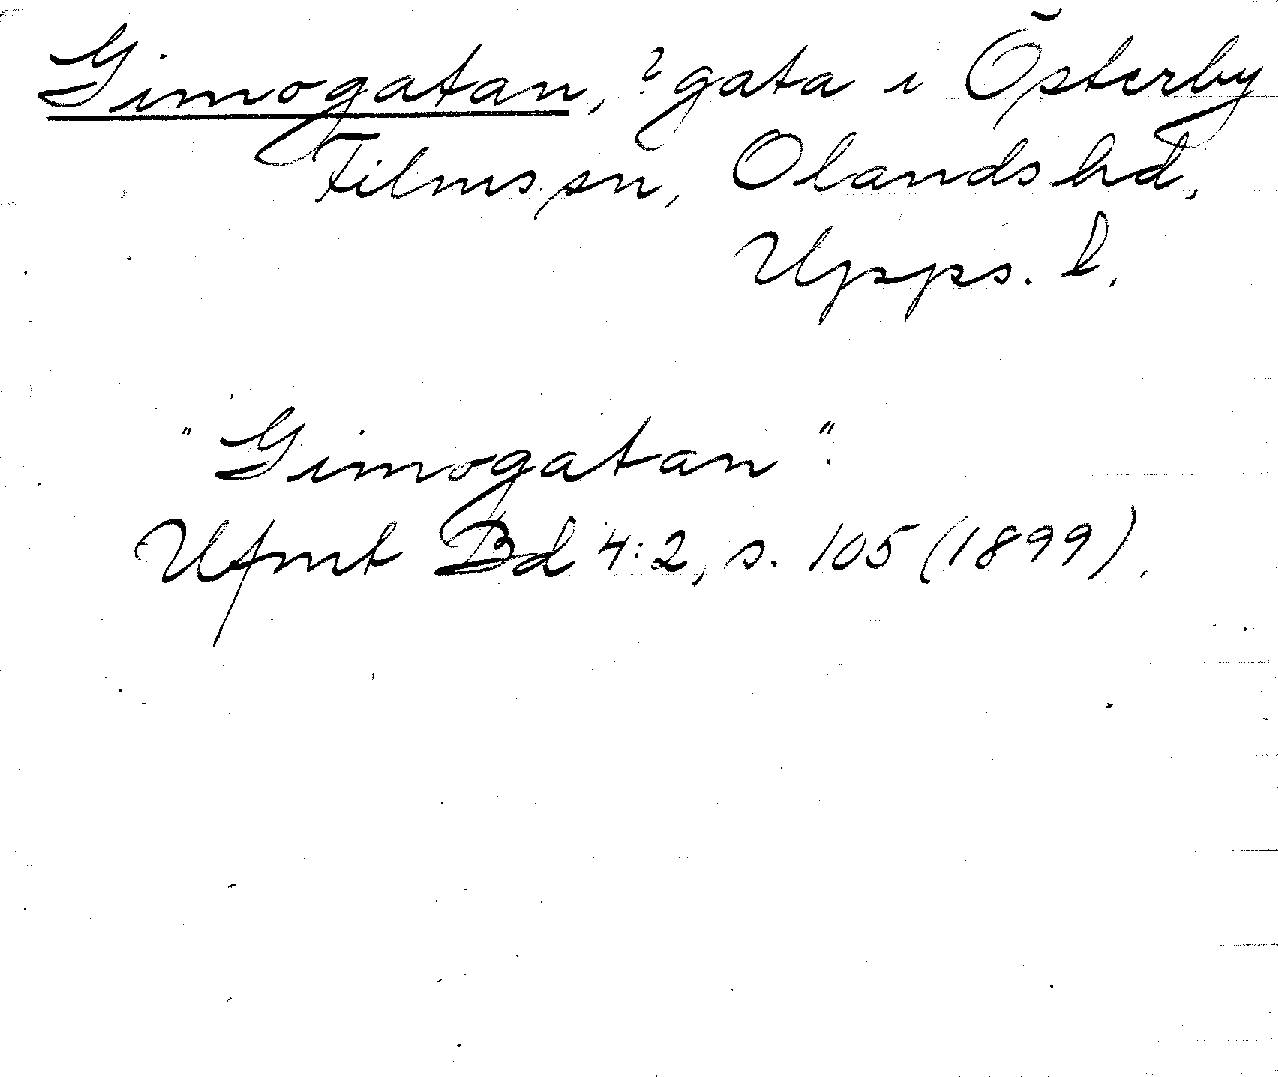 Gimogatan, ? gata i Österby
Films sn, Olands hd,
Upps. l.
"Gimogatan".
Ufmt Bd 4:2, s. 105 (1899).